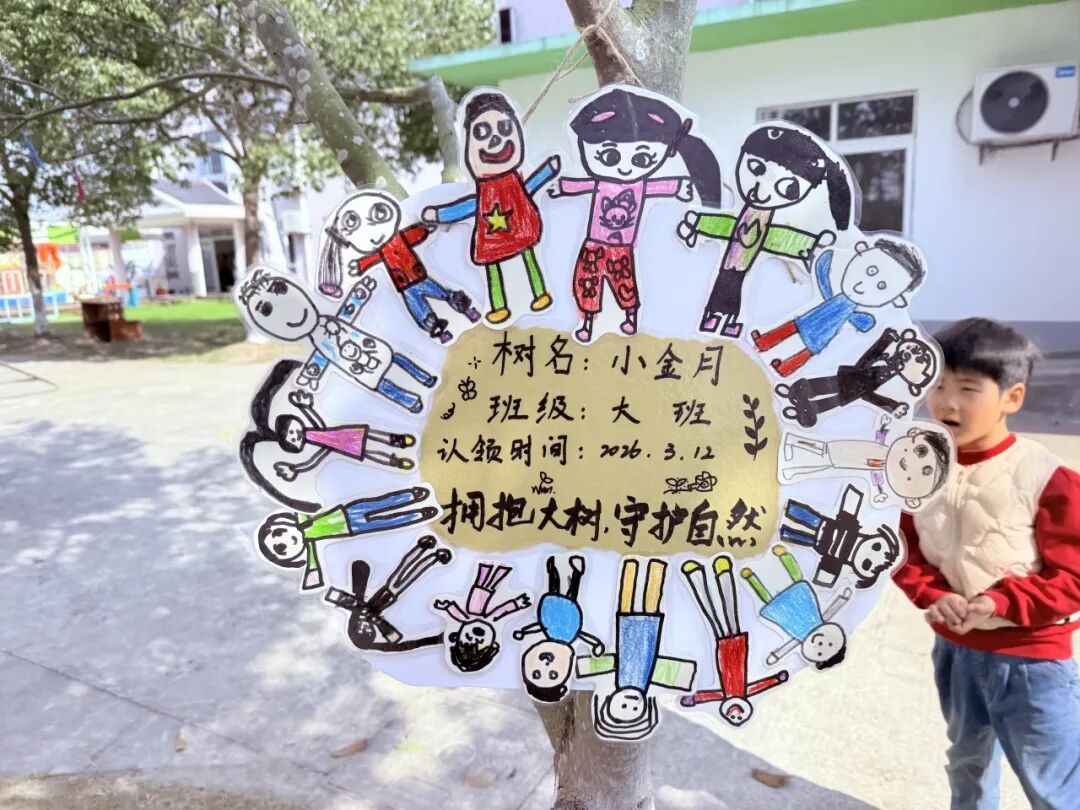 树名：小金月
班级：大 班
认领时间：2026.3.12
拥抱大树，守护自然
Midea